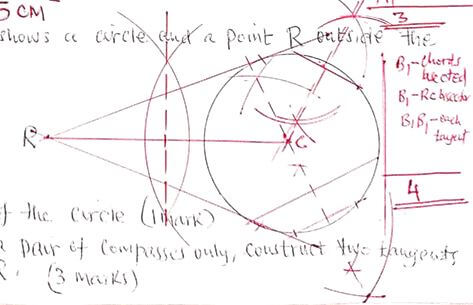 5 CM
shows a circle and a point R outside the
3
B1 - chords
bisected
B1 - RC bisector
B1 B1 - each
tangent
R
C
4
of the circle (1 mark)
a pair of compasses only, construct two tangents
R. (3 marks)